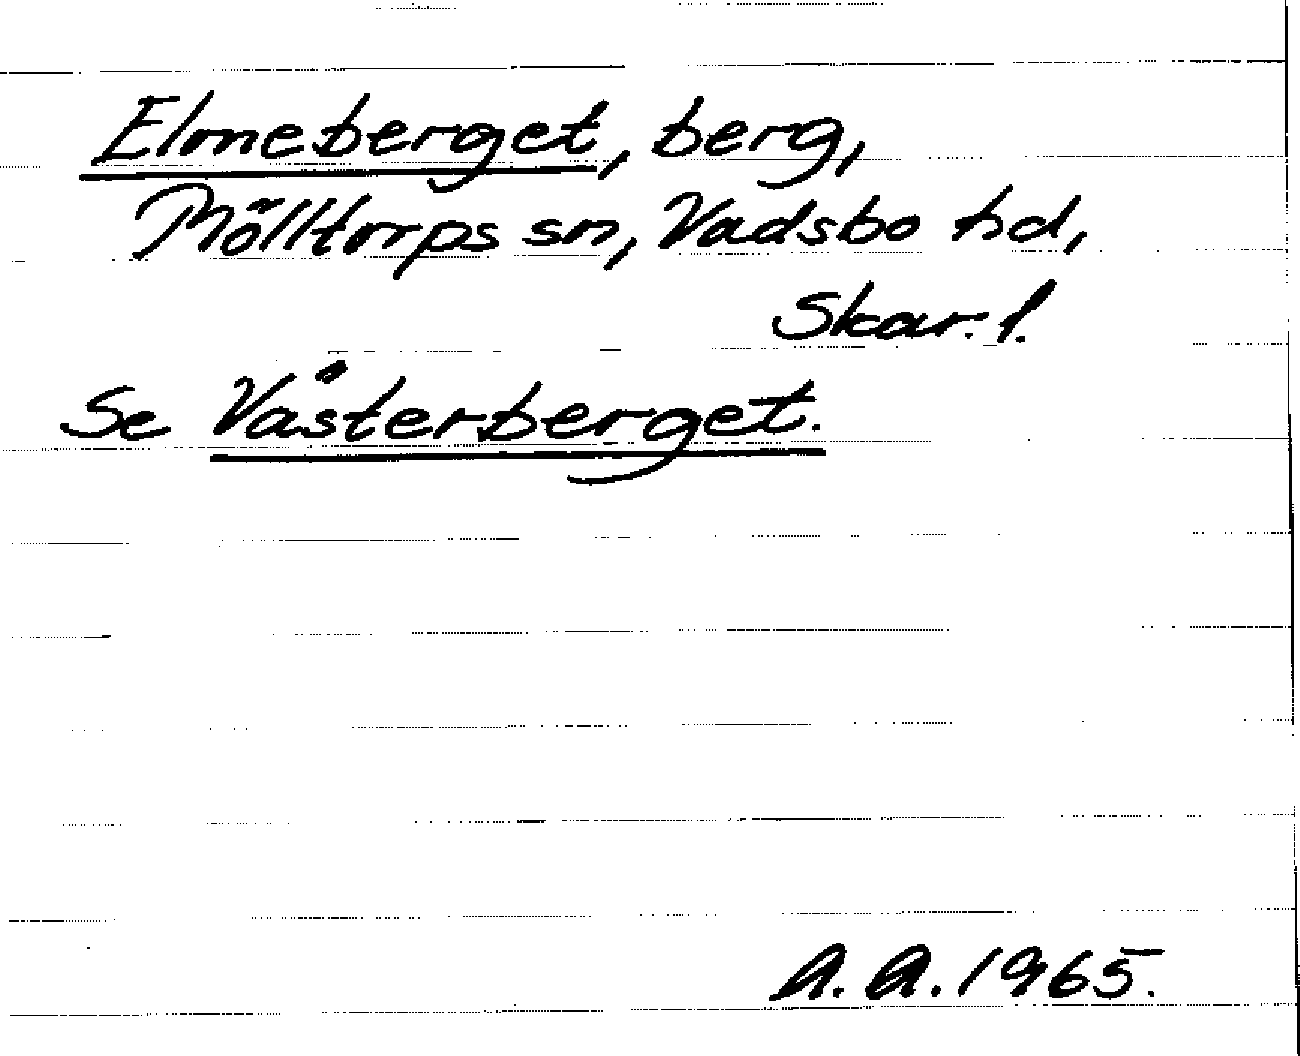 Elmeberget, berg,
Mölltorps sn, Vadsbo hd,
Skar. l.
Se Västerberget.
A. A. 1965.